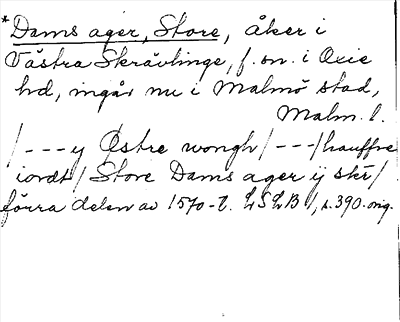 *Dams ager, Store, åker i
Västra Skrävlinge, f. sn. i Oxie
hd, ingår nu i Malmö stad,
Malm. l.
/---y Østre wongh/---/hauffre
iordt/ Store Dams ager ij skr/
förra delen av 1570-t. LSLB 1, s. 390. orig.